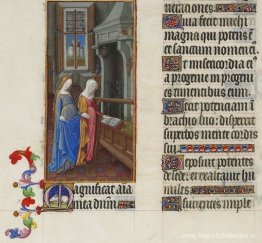 Magnificat aīa
mea dn̄m
nerationes
Quia fecit michi
magna qui potens
et sanctum nomen
Et misericordia ei
a progenie in progeni
es timentibus eum
Fecit potenciam in
brachio suo: dispersit
superbos mente cordis
sui
Deposuit potentes de
sede et exaltauit hu
miles
Esurientes imple